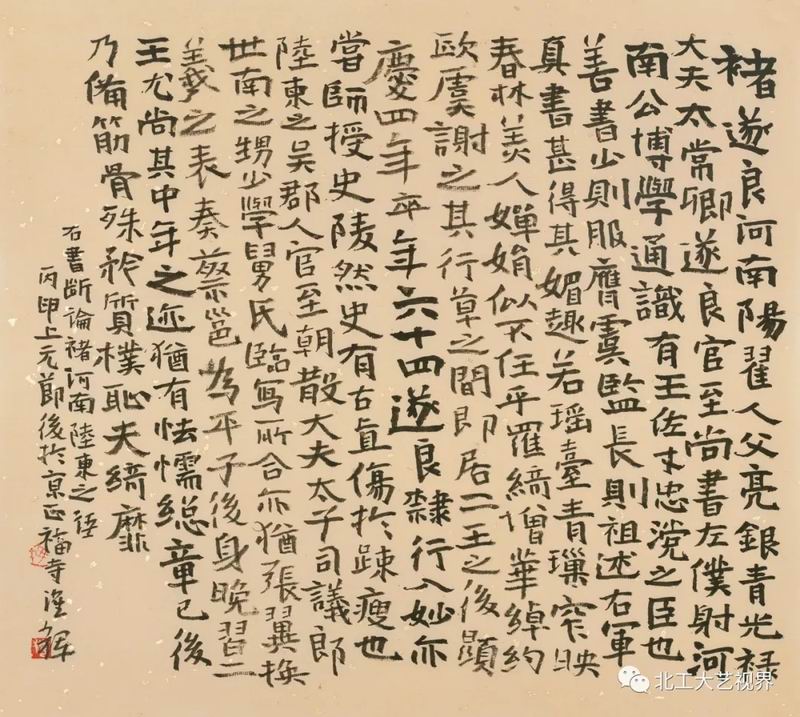 褚遂良河南陽翟人父亮銀青光祿
大夫太常卿遂良官至尚書左僕射河
南公博學通識有王佐才忠讜之臣也
善書少則服膺虞監長則祖述右軍
真書甚得其媚趣若瑶臺青璅窅映
春林美人嬋娟似不任乎羅綺增華綽約
歐虞謝之其行草之間即居二王之後顯
慶四年卒年六十四遂良隸行入妙亦
嘗師授史陵然史有古直傷於疎瘦也
陸柬之吳郡人官至朝散大夫太子司議郎
世南之甥少學舅氏臨寫所合亦猶張翼換
羲之表奏蔡邕為平子後身晚習二
王尤尚其中年之迹猶有怯懦總章已後
乃備筋骨殊矜質樸恥夫綺靡
右書斷論褚河南陸柬之語
丙申上元節後於京正福寺
北工大艺视界